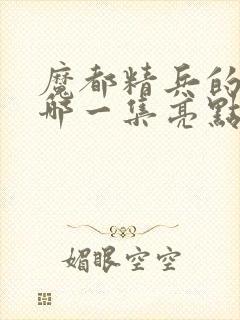 魔都精兵的
哪一集亮點
媚眼空空